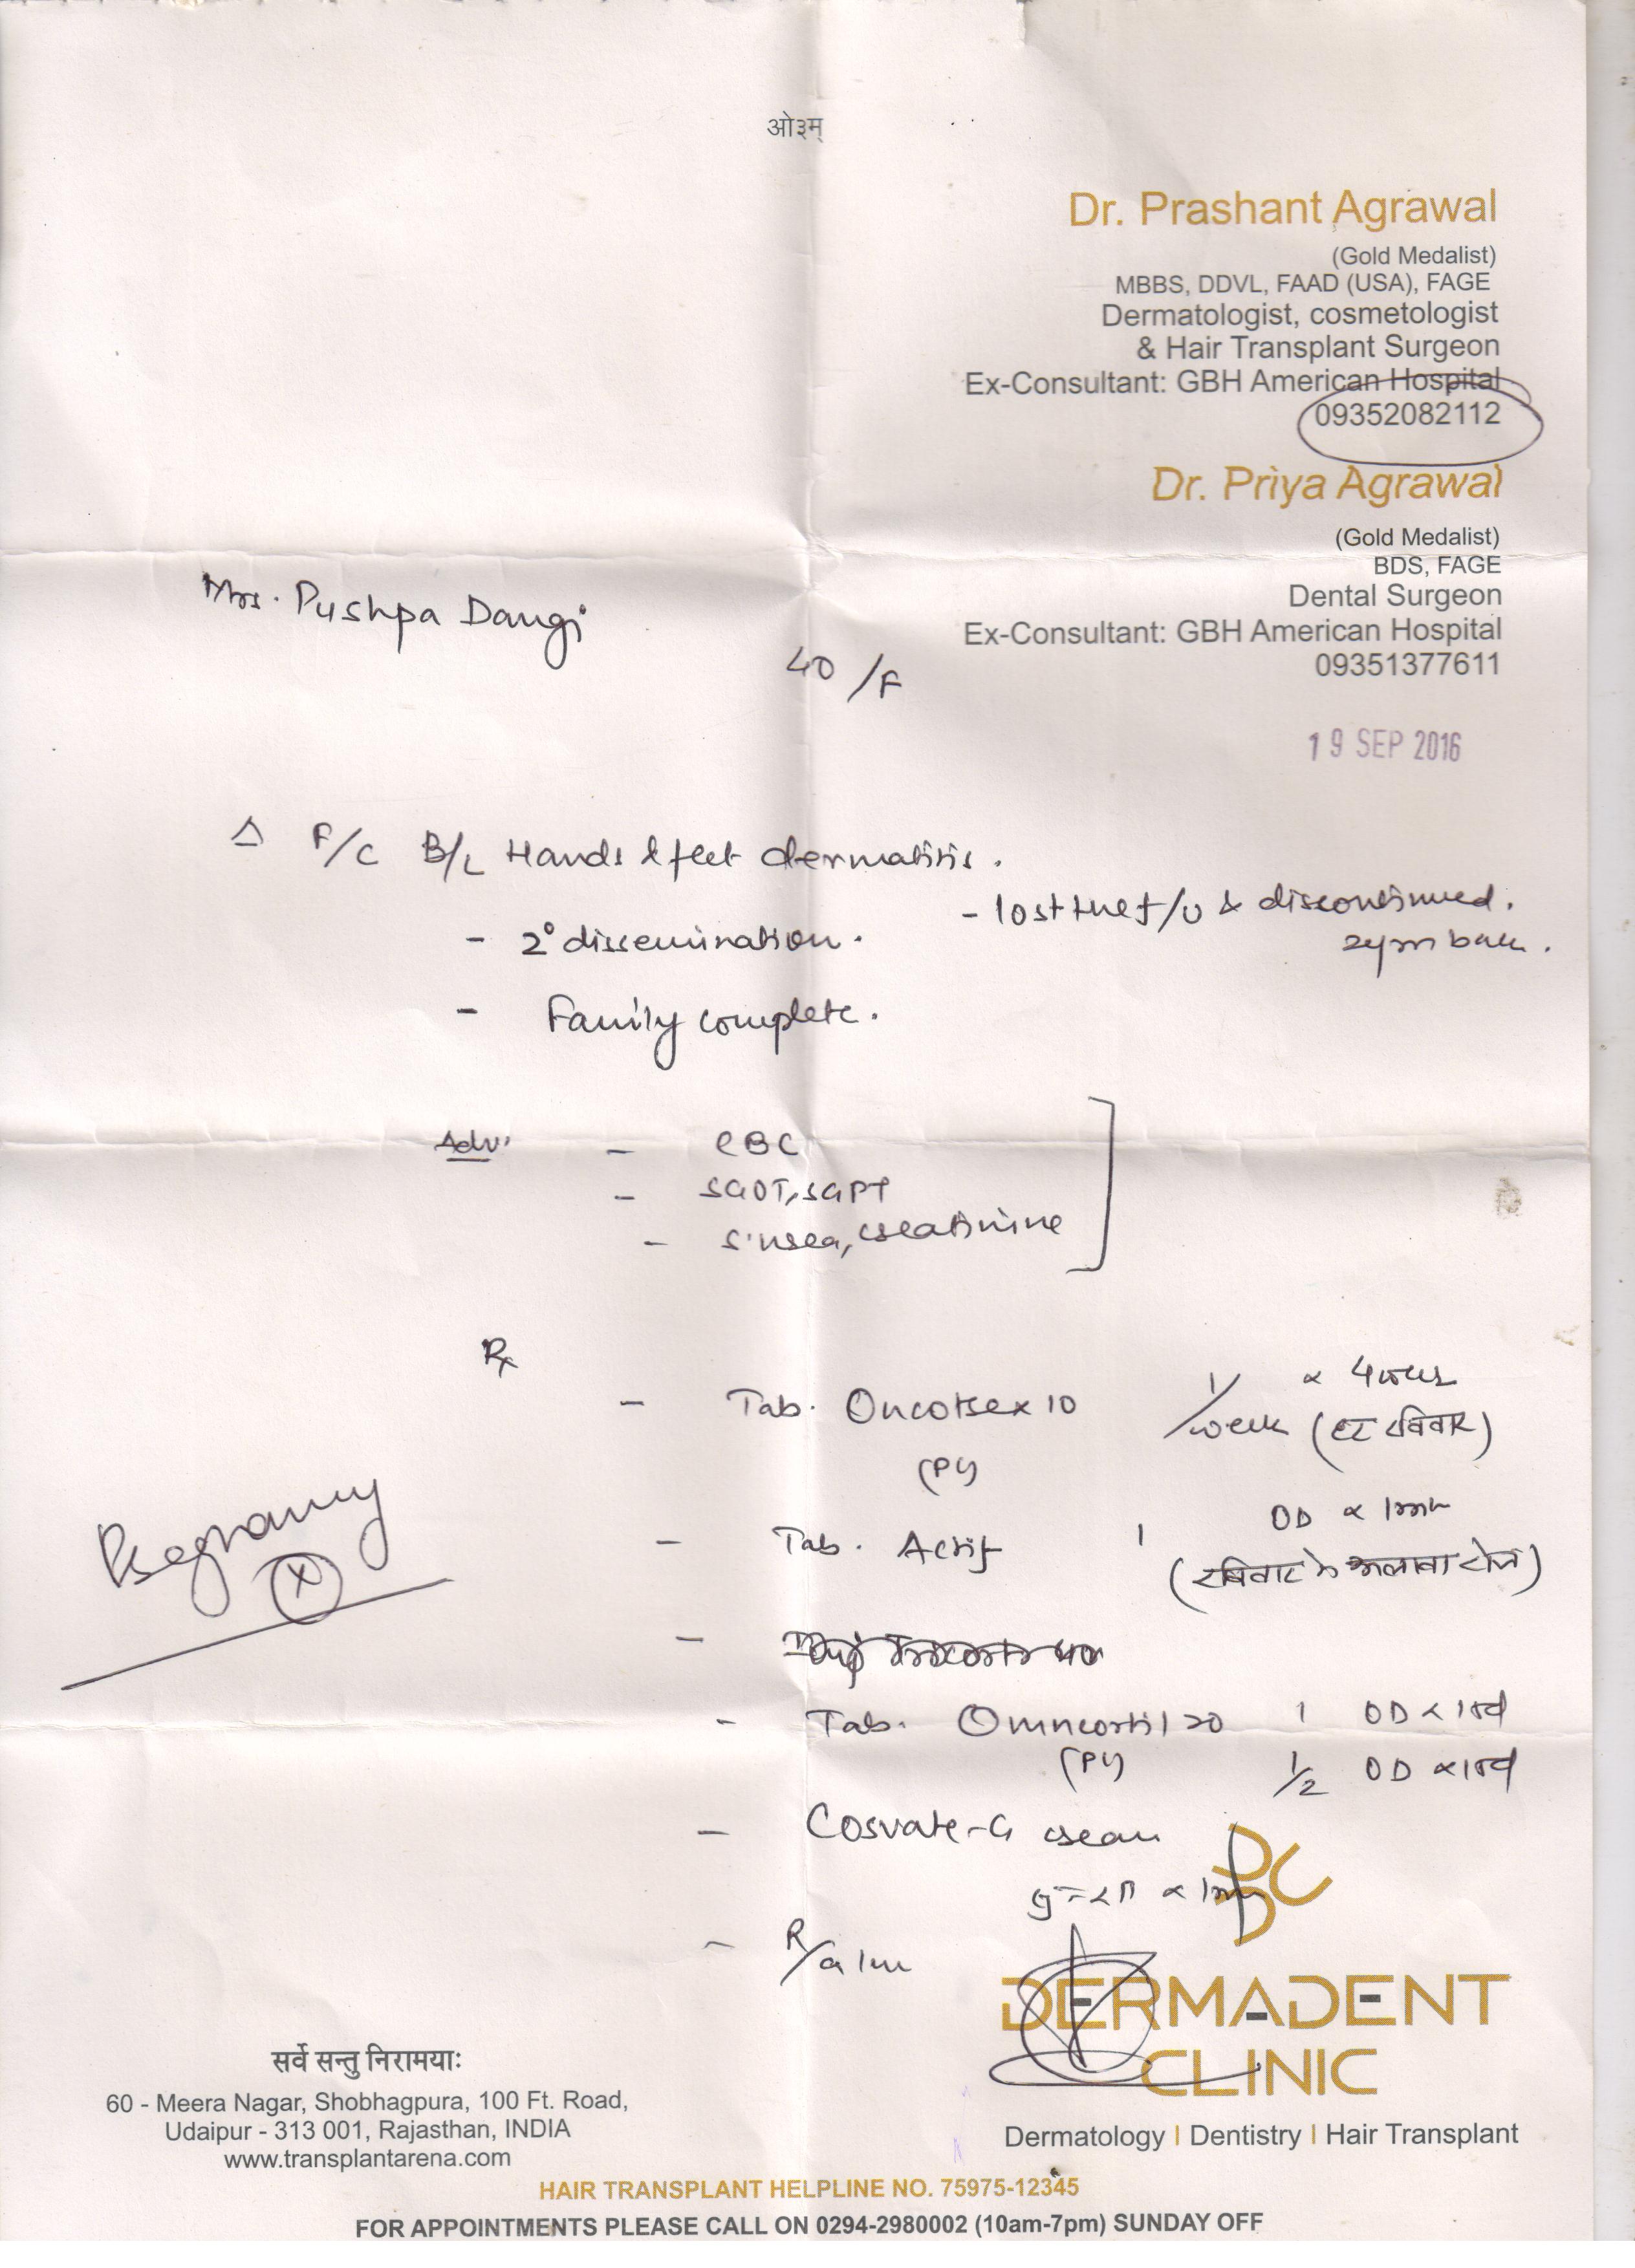 ओ३म्
Dr. Prashant Agrawal
(Gold Medalist)
MBBS, DDVL, FAAD (USA), FAGE
Dermatologist, cosmetologist
& Hair Transplant Surgeon
Ex-Consultant: GBH American Hospital
09352082112
Dr. Priya Agrawal
(Gold Medalist)
BDS, FAGE
Dental Surgeon
Ex-Consultant: GBH American Hospital
09351377611
Mrs. Pushpa Dangi
40/F
19 SEP 2016
Δ F/C B/L Hands & feet dermatitis.
- lost the f/u & discontinued.
- 2° dissemination.
- Family complete.
Adv. - CBC
- SGOT, SGPT
- S. urea, creatinine
Rx
- Tab. Oncotrex 10 1/week × 4 week
(हर रविवार)
- Tab. Actif 1 OD ×
(रविवार के अलावा रोज)
Pregnancy
(X)
-
- Tab. Omncortil 20 1 OD ×
1/2 OD ×
- Cosvate-G cream
- R/a
DDC
DERMADENT
CLINIC
Dermatology | Dentistry | Hair Transplant
सर्वे सन्तु निरामयाः
60 - Meera Nagar, Shobhagpura, 100 Ft. Road,
Udaipur - 313 001, Rajasthan, INDIA
www.transplantarena.com
HAIR TRANSPLANT HELPLINE NO. 75975-12345
FOR APPOINTMENTS PLEASE CALL ON 0294-2980002 (10am-7pm) SUNDAY OFF